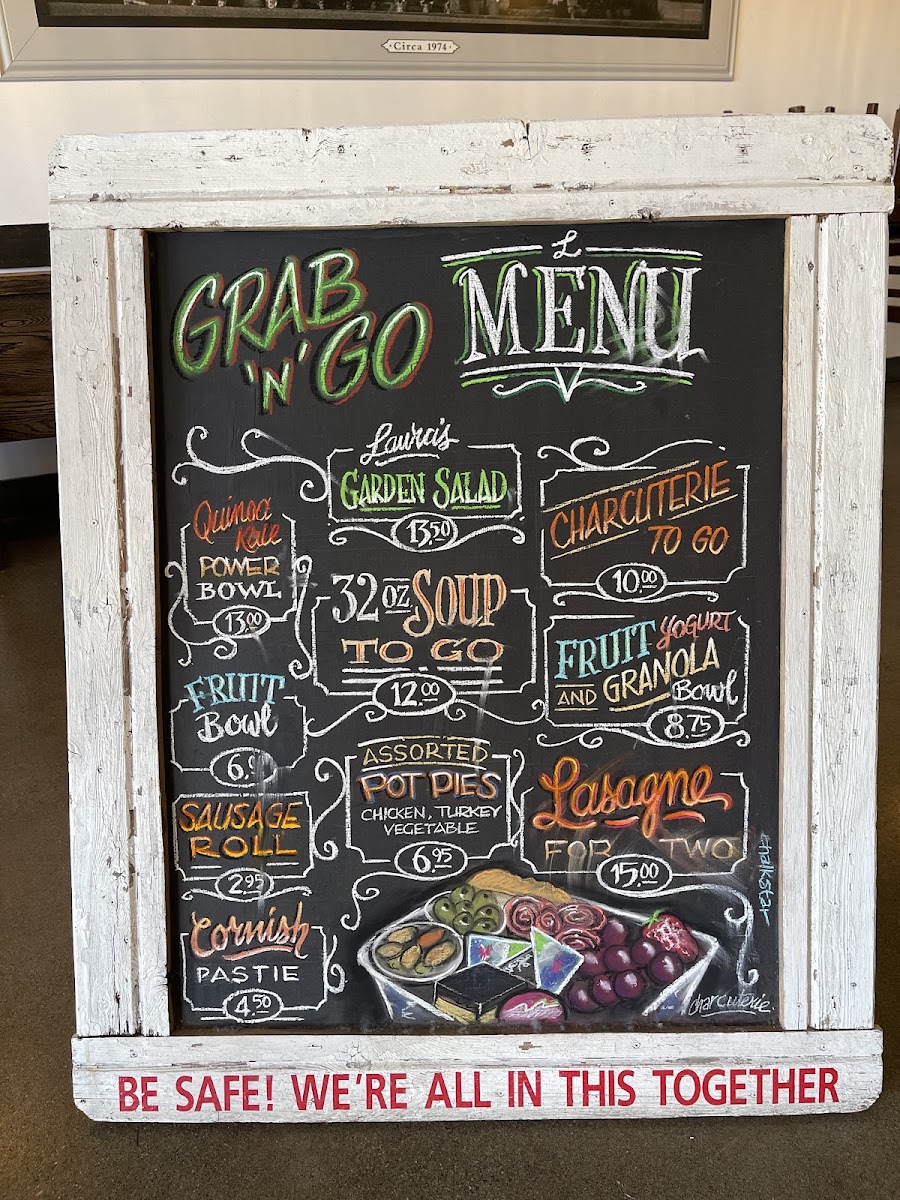 Circa 1974
GRAB
'N' GO
MENU
Quinoa
Kale
POWER
BOWL
13.00
FRUIT
Bowl
SAUSAGE
ROLL
2.95
Cornish
PASTIE
4.50
Laura's
GARDEN SALAD
13.50
32 OZ SOUP
TO GO
12.00
ASSORTED
POT PIES
CHICKEN, TURKEY
VEGETABLE
6.95
CHARCUTERIE
TO GO
10.00
FRUIT YOGURT
AND GRANOLA
Bowl
8.75
Lasagne
FOR TWO
15.00
charcuterie
BE SAFE! WE'RE ALL IN THIS TOGETHER